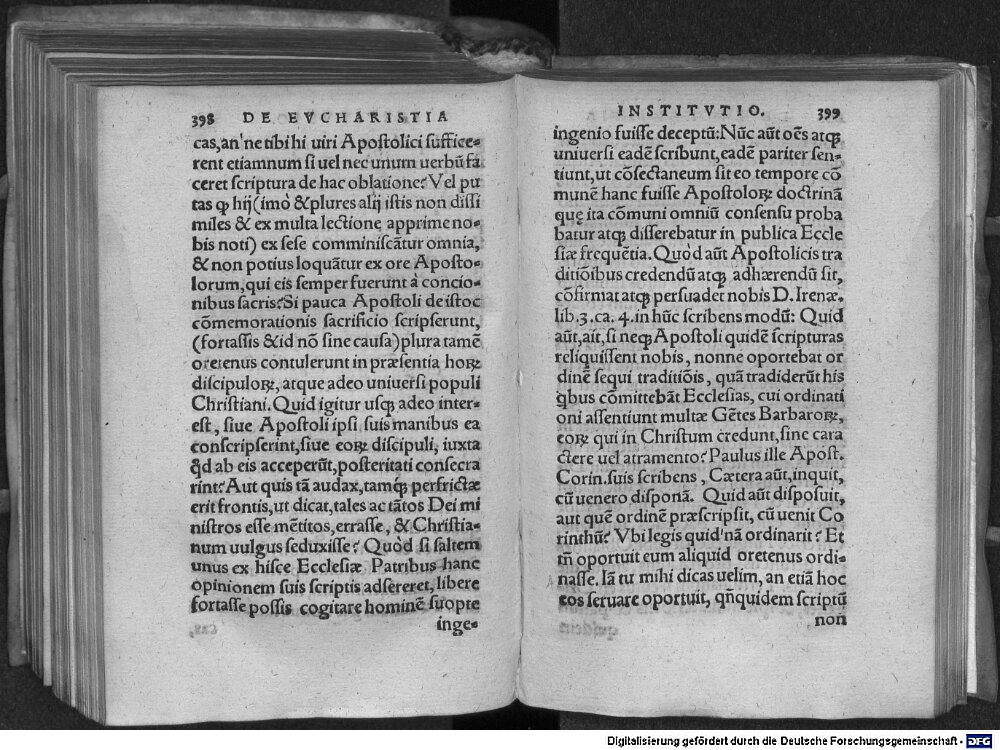 398 DE EVCHARISTIA
cas, an'ne tibi hi uiri Apostolici suffice-
rent etiamnum si uel nec unum uerbũ fa
ceret scriptura de hac oblatione? Vel pu
tas ꝙ hij (imò & plures alij istis non dissi
miles & ex multa lectione apprime no-
bis noti) ex sese comminiscãtur omnia,
& non potius loquãtur ex ore Aposto-
lorum, qui eis semper fuerunt à concio-
nibus sacris? Si pauca Apostoli de istoc
cõmemorationis sacrificio scripserunt,
(fortassis & id nõ sine causa) plura tamẽ
oretenus contulerunt in præsentia horꝝ
discipulorꝝ, atque adeo uniuersi populi
Christiani. Quid igitur usqꝫ adeo inter-
est, siue Apostoli ipsi suis manibus ea
conscripserint, siue eorꝝ discipuli, iuxta
q̃d ab eis acceperũt, posteritati consecra
rint? Aut quis tã audax, tamqꝫ perfrictæ
erit frontis, ut dicat, tales ac tãtos Dei mi
nistros esse mẽtitos, errasse, & Christia-
num uulgus seduxisse? Quòd si saltem
unus ex hisce Ecclesiæ Patribus hanc
opinionem suis scriptis adsereret, libere
fortasse possis cogitare hominẽ suopte
inge-
INSTITVTIO. 399
ingenio fuisse deceptũ: Nũc aũt oẽs atqꝫ
uniuersi eadẽ scribunt, eadẽ pariter sen-
tiunt, ut cõsectaneum sit eo tempore cõ
munẽ hanc fuisse Apostolorꝝ doctrinã
quę ita cõmuni omniũ consensu proba
batur atqꝫ disserebatur in publica Eccle
siæ frequẽtia. Quòd aũt Apostolicis tra
ditiõibus credendũ atqꝫ adhærendũ sit,
cõfirmat atqꝫ persuadet nobis D. Irenæ.
lib. 3. ca. 4. in hũc scribens modũ: Quid
aũt, ait, si neqꝫ Apostoli quidẽ scripturas
reliquissent nobis, nonne oportebat or
dinẽ sequi traditiõis, quã tradiderũt his
ꝗbus cõmittebãt Ecclesias, cui ordinati
oni assentiunt multæ Gẽtes Barbarorꝝ,
eorꝝ qui in Christum credunt, sine cara
ctere uel atramento? Paulus ille Apost.
Corin. suis scribens, Cætera aũt, inquit,
cũ uenero disponã. Quid aũt disposuit,
aut quẽ ordinẽ præscripsit, cũ uenit Co
rinthũ? Vbi legis quid'nã ordinarit? Et
tñ oportuit eum aliquid oretenus ordi-
nasse. Iã tu mihi dicas uelim, an etiã hoc
eos seruare oportuit, qñquidem scriptũ
non
Digitalisierung gefördert durch die Deutsche Forschungsgemeinschaft - DFG